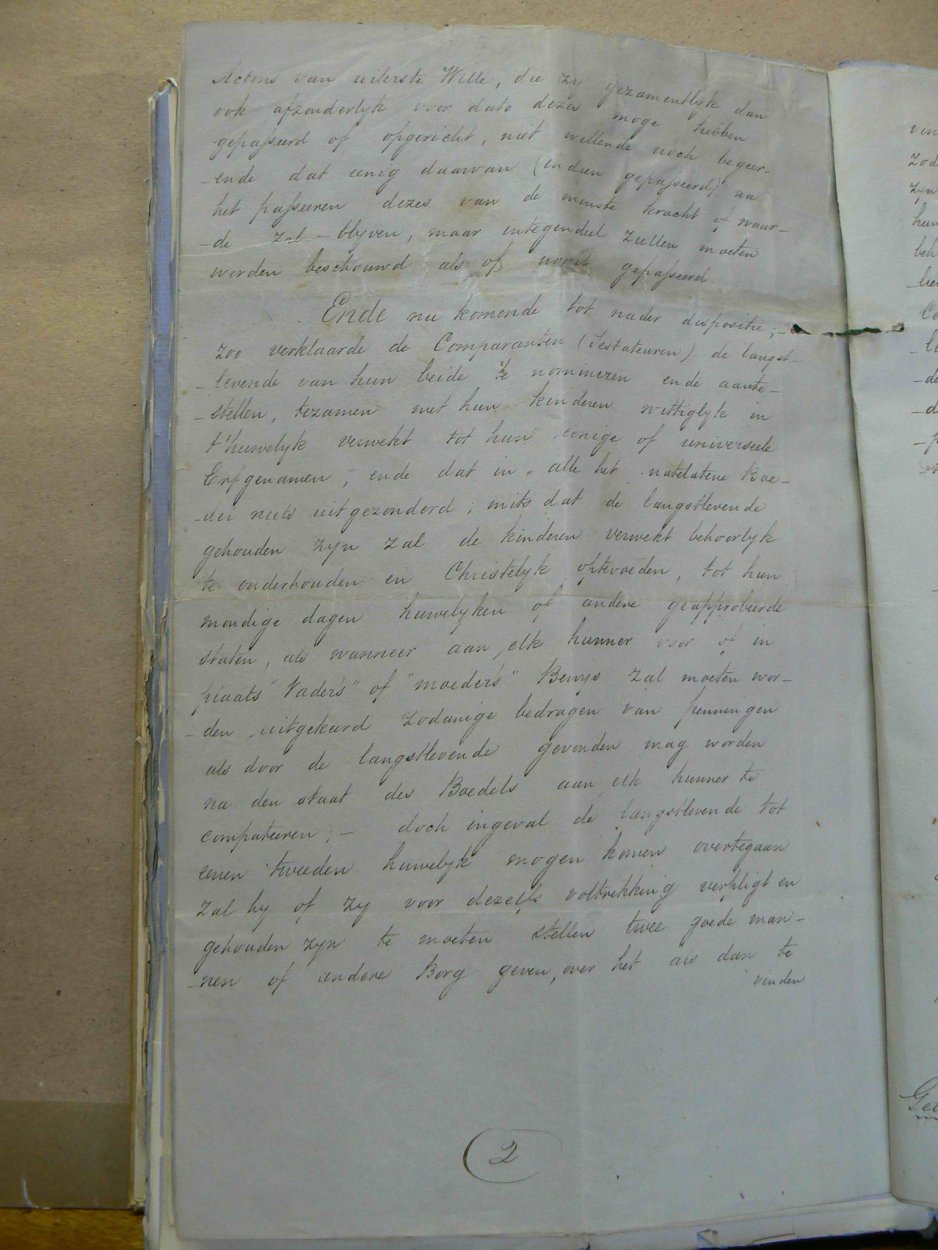 Actens van uiterste Wille, die zy gezamentlyk dan
ook afzonderlyk voor dato dezes moge hebben
gepasseerd of opgericht, niet willende noch begeer-
-ende dat eenig daarvan (indien gepasseerd) na
het passeeren dezes van de minste kracht of waar-
-de zal blyven, maar integendeel zullen moeten
worden beschouwd als of nooit gepasseerd
Ende nu komende tot nader dispositie,-
zoo verklaarde de Comparanten (testateuren) de langst-
-levende van hun beide te nommeren ende aante-
-stellen, tezamen met hun kinderen wettiglyk in
t'huwelyk verwekt tot hun eenige of universeele
Erfgenamen, ende dat in alle het natelatene Boe-
-del niets uitgezonderd; mits dat de langstlevende
gehouden zyn zal de kinderen verwekt behoorlyk
te onderhouden en Christelyk optevoeden, tot hun
mondige dagen huwelyken of andere geapprobeerde
staten, als wanneer aan elk hunner voor of in
plaats "Vaders" of "moeders" Bewys zal moeten wor-
-den uitgekeerd zodanige bedragen van penningen
als door de langstlevende gevonden mag worden
na den staat des Boedels aan elk hunner te
competeeren; - doch ingeval de langstlevende tot
eenen tweeden huwelyk mogen komen overtegaan
zal hy of zy voor dezelfs voltrekking verpligt en
gehouden zyn te moeten stellen twee goede man-
-nen of andere Borg geven, over het als dan te
vinden
2